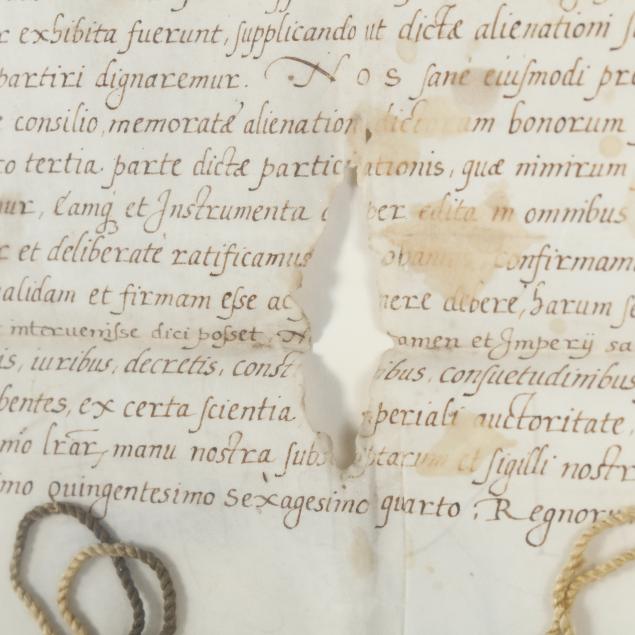 exhibita fuerunt, supplicando ut dictæ alienationi
partiri dignaremur. Nos sane eiusmodi
consilio, memoratæ alienation dictorum bonorum
tertia parte dictæ partic ationis, quæ nimirum
eamq et Instrumenta per edita in omnibus
et deliberate ratificamus obamus, confirmam
validam et firmam esse ac nere debere, harum
intervenisse dici posset, N amen et Imperij sa
is, iuribus, decretis, const ibus, consuetudinibus
bentes, ex certa scientia periali auctoritate,
mo lrar, manu nostra subs ptarum et sigilli nostr
imo quingentesimo sexagesimo quarto; Regnor